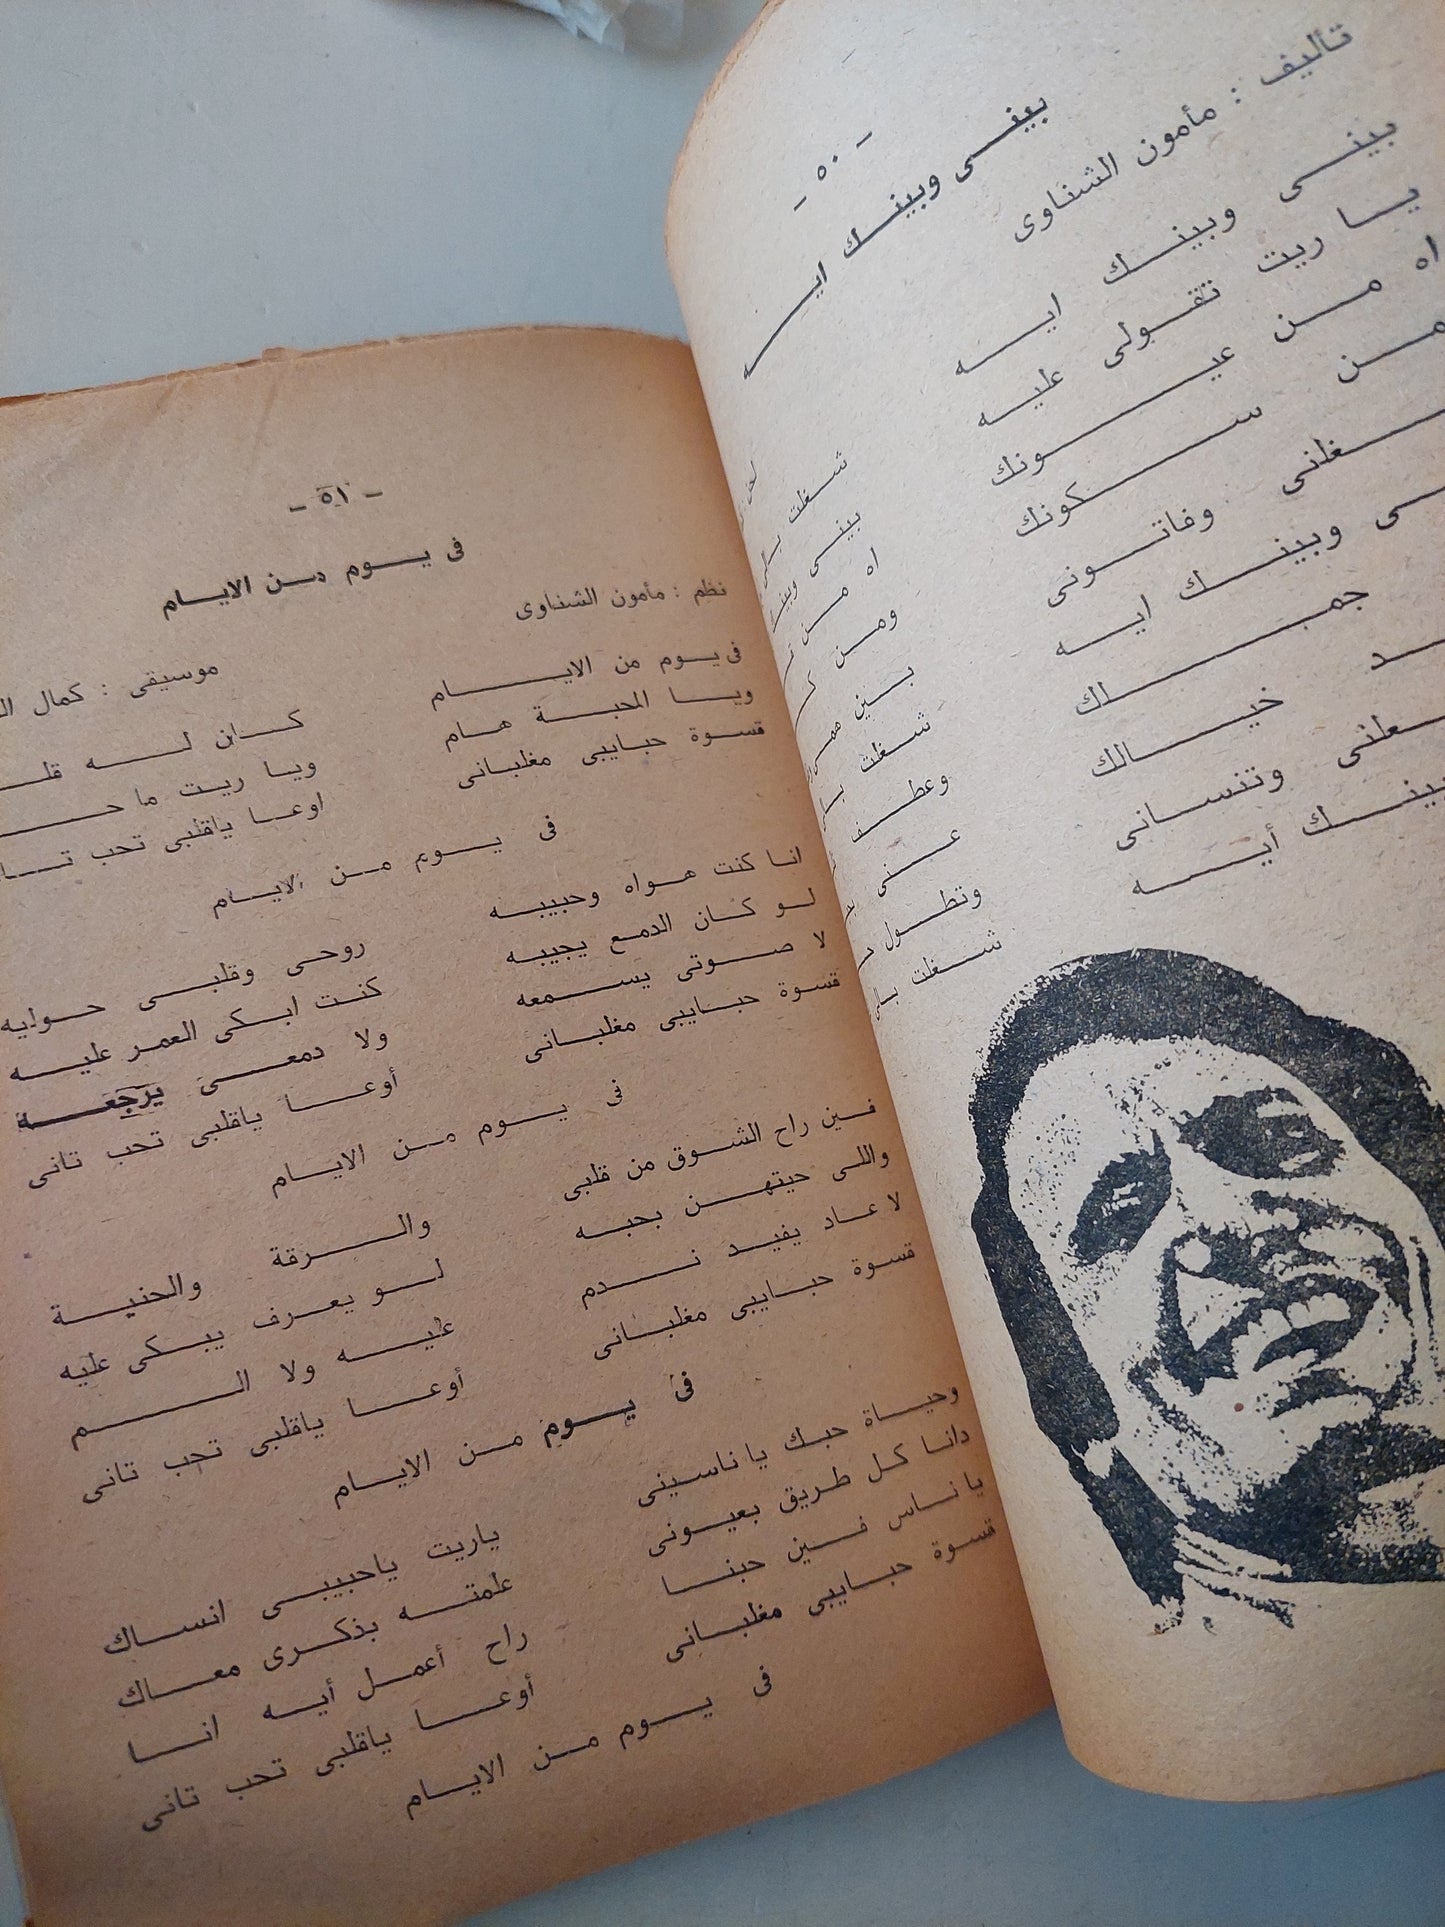 - ٥٠ -
بينى وبينك ايه
تأليف : مأمون الشناوى
بينى وبينك ايه
شغلت
يا ريت تقولى عليه
بينى
اه من عيونك
اه من
من سكونك
ومن
وفاتونى
بين
وبينك ايه
شغلت
جمالك
خيالك
عنى
وتنسانى
وتطول
أيه
شغلت
- ٥١ -
فى يوم من الايام
نظم : مأمون الشناوى
موسيقى : كمال
فى يوم من الايام
كان له
ويا المحبة هام
ويا ريت ما
قسوة حبايبى مغلبانى
اوعا ياقلبى تحب
فى يوم من الايام
انا كنت هواه وحبيبه
روحى وقلبى حواليه
لو كان الدمع يجيبه
كنت ابكى العمر عليه
لا صوتى يسمعه
ولا دمعى يرجعه
قسوة حبايبى مغلبانى
أوعا ياقلبى تحب تانى
فى يوم من الايام
فين راح الشوق من قلبى
والرقة والحنية
واللى حيتهن بحبه
لو يعرف يبكى عليه
لا عاد يفيد ندم
عليه ولا الم
قسوة حبايبى مغلبانى
أوعا ياقلبى تحب تانى
فى يوم من الايام
وحياة حبك ياناسينى
ياريت ياحبيبى انساك
دانا كل طريق بعيونى
علمته بذكرى معاك
ياناس فين حبنا
راح أعمل أيه انا
قسوة حبايبى مغلبانى
أوعا ياقلبى تحب تانى
فى يوم من الايام